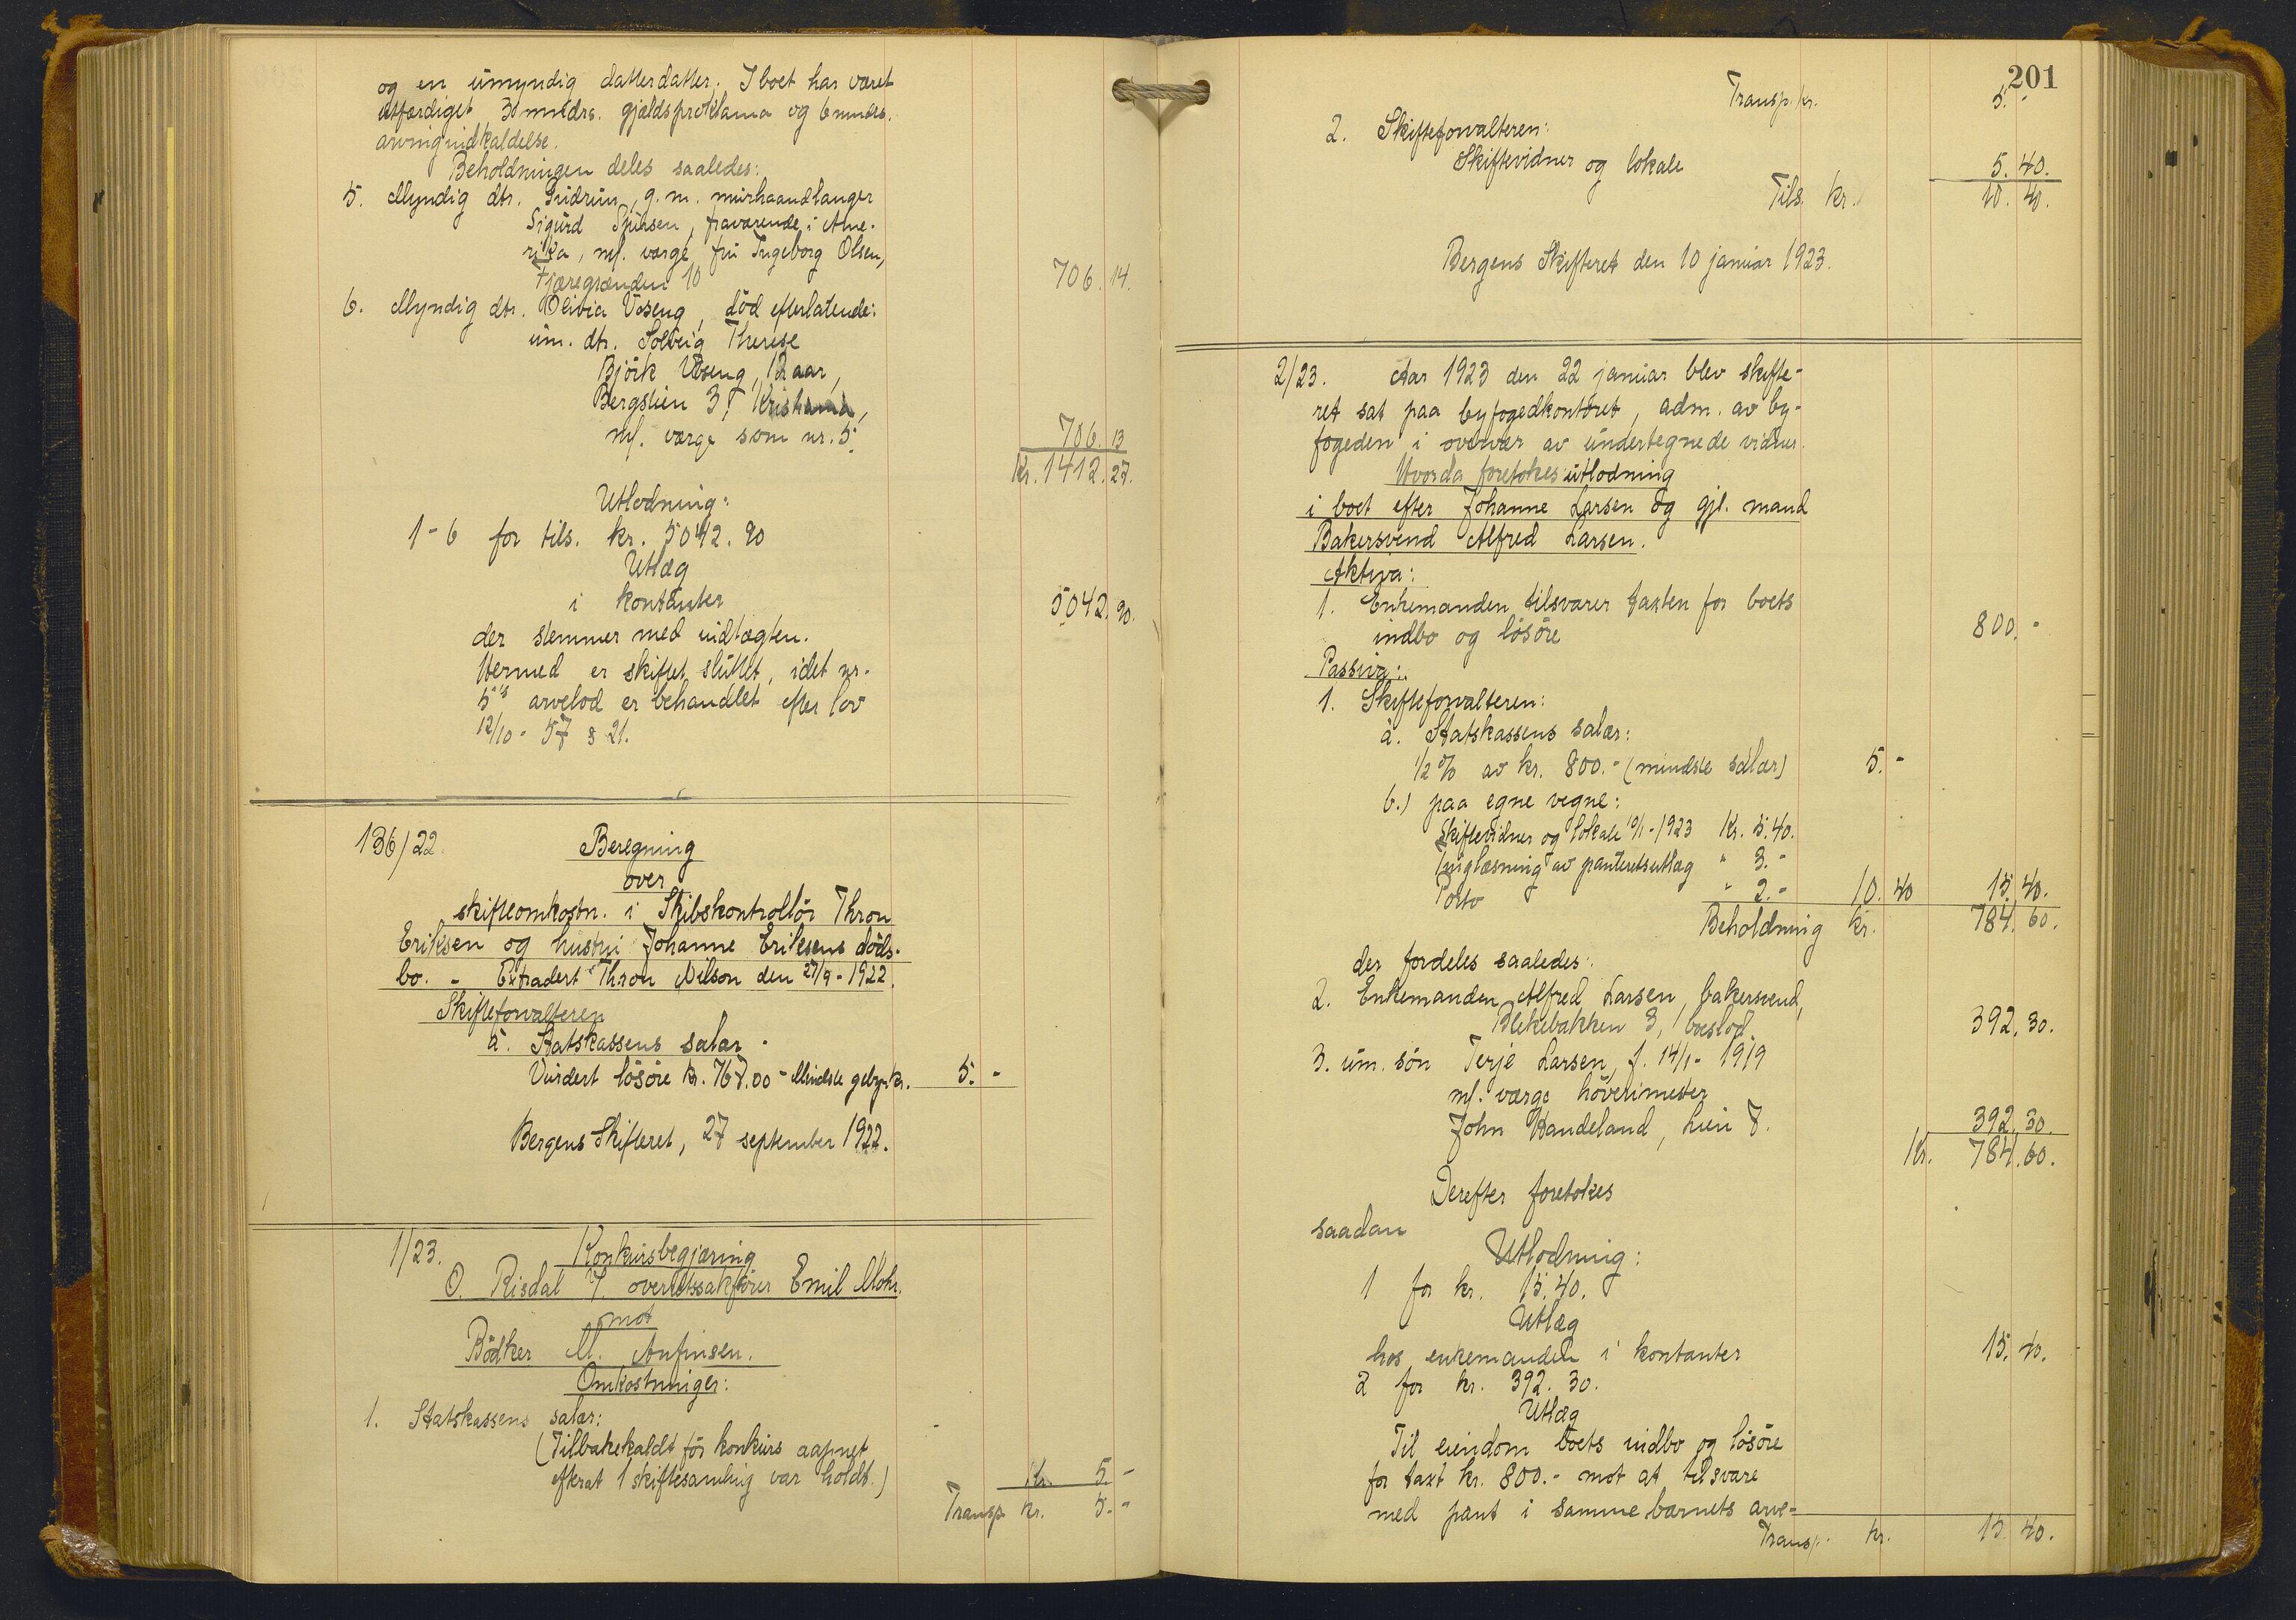 og en umyndig datterdatter. I boet har været
utfærdiget 3 mndrs. gjældsproklama og 6 mndrs.
arvingindkaldelse.
Beholdningen deles saaledes:
5. Myndig dtr. Gudrun, g. m. murhaandlanger
Sigurd Sjursen, fraværende i Ame-
rika, m/. værge fru Ingeborg Olsen,
Fjæregrænden 10 706. 14.
6. Myndig dtr. Olivia Voseng, död efterlatende:
um. dtr. Solveig Therese
Björk Voseng, 12 aar,
Bergslien 3, Kristiania,
m/. værge som nr. 5. 706. 13
Kr. 1412. 27.
Utlodning:
1-6 for tils. kr. 5042. 90
Utlæg
i kontanter 5042. 90.
der stemmer med indtægten.
Hermed er skiftet sluttet, idet nr.
5's arvelod er behandlet efter lov
12/10 - 57 § 21.
136/22. Beregning
over
skifteomkostn. i Skibskontrollör Thron
Eriksen og hustru Johanne Eriksens döds-
bo. - Extradert Thron Nilson den 27/9 - 1922.
Skifteforvalteren
a. Statskassens salær.
Vurdert lösöre kr. 767.00 - Mindste gebyr kr. 5. -
Bergens Skifteret, 27 september 1922.
1/23. Konkursbegjæring
O. Risdal v/. overretssakförer Emil Mohr.
mot
Bödker M. Anfinsen.
Omkostninger:
1. Statskassens salær:
(Tilbakekaldt för konkurs aapnet
efterat 1 skiftesamling var holdt.) Kr. 5. -
Transp. kr. 5. -
201
Transp. kr. 5. -
2. Skifteforvalteren:
Skiftevidner og lokale 5. 40.
Tils. kr. 10. 40.
Bergens Skifteret den 10 januar 1923.
2/23. Aar 1923 den 22 januar blev skifte-
ret sat paa byfogedkontoret, adm. av by-
fogeden i overvær av undertegnede vidner.
Hvorda foretokes utlodning
i boet efter Johanne Larsen og gjl. mand
Bakersvend Alfred Larsen.
Aktiva:
1. Enkemanden tilsvarer taxten for boets
indbo og lösöre 800. -
Passiva:
1. Skifteforvalteren:
a. Statskassens salær:
1/2 % av kr. 800. - (mindste salær) 5. -
b.) paa egne vegne:
Skiftevidner og lokale 10/1 - 1923 Kr. 5.40.
Tinglæsning av panteretsutlæg " 3. -
Porto " 2. - 10. 40 15. 40.
Beholdning kr. 784. 60.
der fordeles saaledes:
2. Enkemanden Alfred Larsen, bakersvend,
Blekebakken 3, boeslod. 392. 30.
3. um. sön Terje Larsen, f. 14/1 - 1919
m/. værge
John Handeland, Lien 8. 392. 30.
Kr. 784. 60.
Derefter foretokes
saadan
Utlodning:
1 for kr. 15. 40.
Utlæg
hos enkemanden i kontanter 15. 40.
2 for kr. 392. 30.
Utlæg
Til eiendom boets indbo og lösöre
for taxt kr. 800. - mot at tilsvare
med pant i samme barnets arve-
Transp. kr. 15. 40.